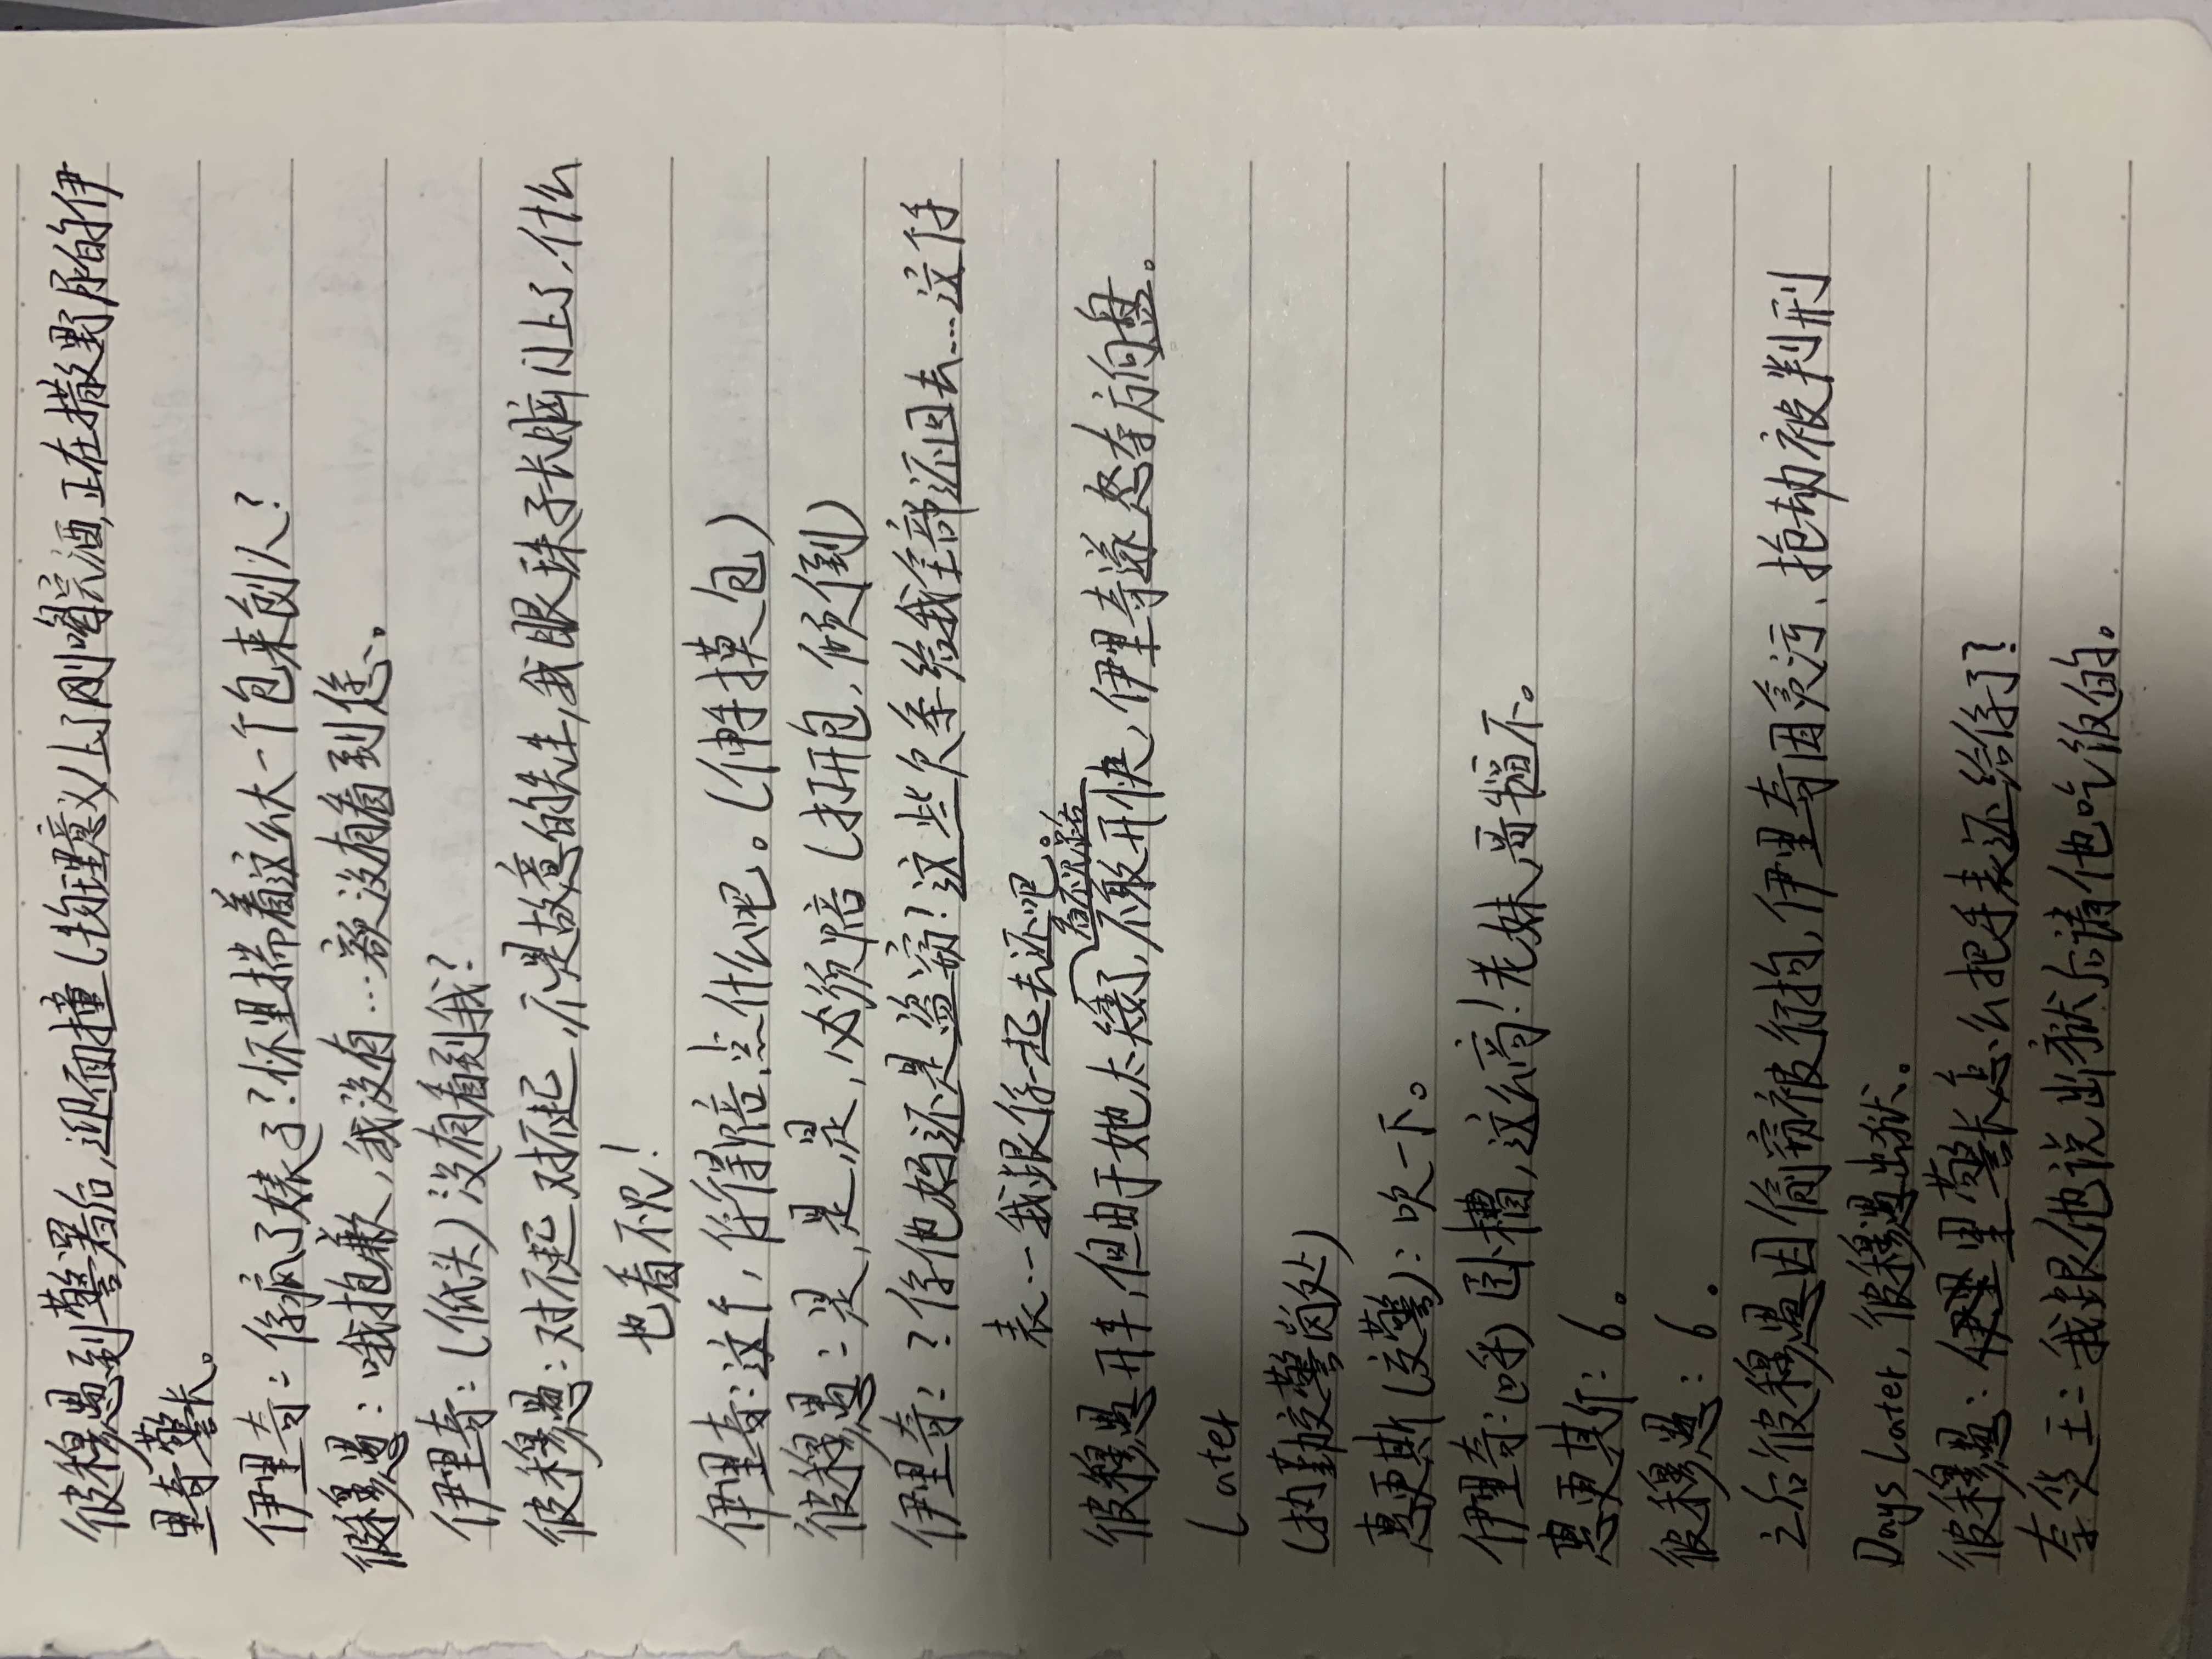 彼穆愚到警署后,迎面撞(物理意义)上了刚喝完酒,正在撒野尿的伊
里奇警长。
伊里奇:你疯了婊子?怀里揣着这么大一个包来创人?
彼穆愚:哦抱歉,我没有…额没有看到您。
伊里奇:(低头)没有看到我?
彼穆愚:对不起对不起,不是故意的先生,我眼珠子长脑门上了,什么
也看不见!
伊里奇:这个,你得赔点什么吧。(伸手摸包)
彼穆愚:是,是,是,必须赔(打开包,倾倒)
伊里奇:?你他妈还是盗窃?这些欠条给我全部还回去…这件
表…我跟你一起去还吧。
看不见路
彼穆愚开车,但由于她太矮了,不敢开快,伊里奇遂怒夺方向盘。
Later
(执勤交警岗处)
惠更斯(交警):吹一下。
伊里奇:(呼)卧槽,这么高!老妹,哥牛逼不。
惠更斯:6。
彼穆愚:6.
之后彼穆愚因偷窃被行拘,伊里奇因贪污、抢劫被判刑
Days Later,彼穆愚出狱。
彼穆愚:伊里警长怎么把手表还给你了?
李货王:我跟他说出狱后请他吃饭的。